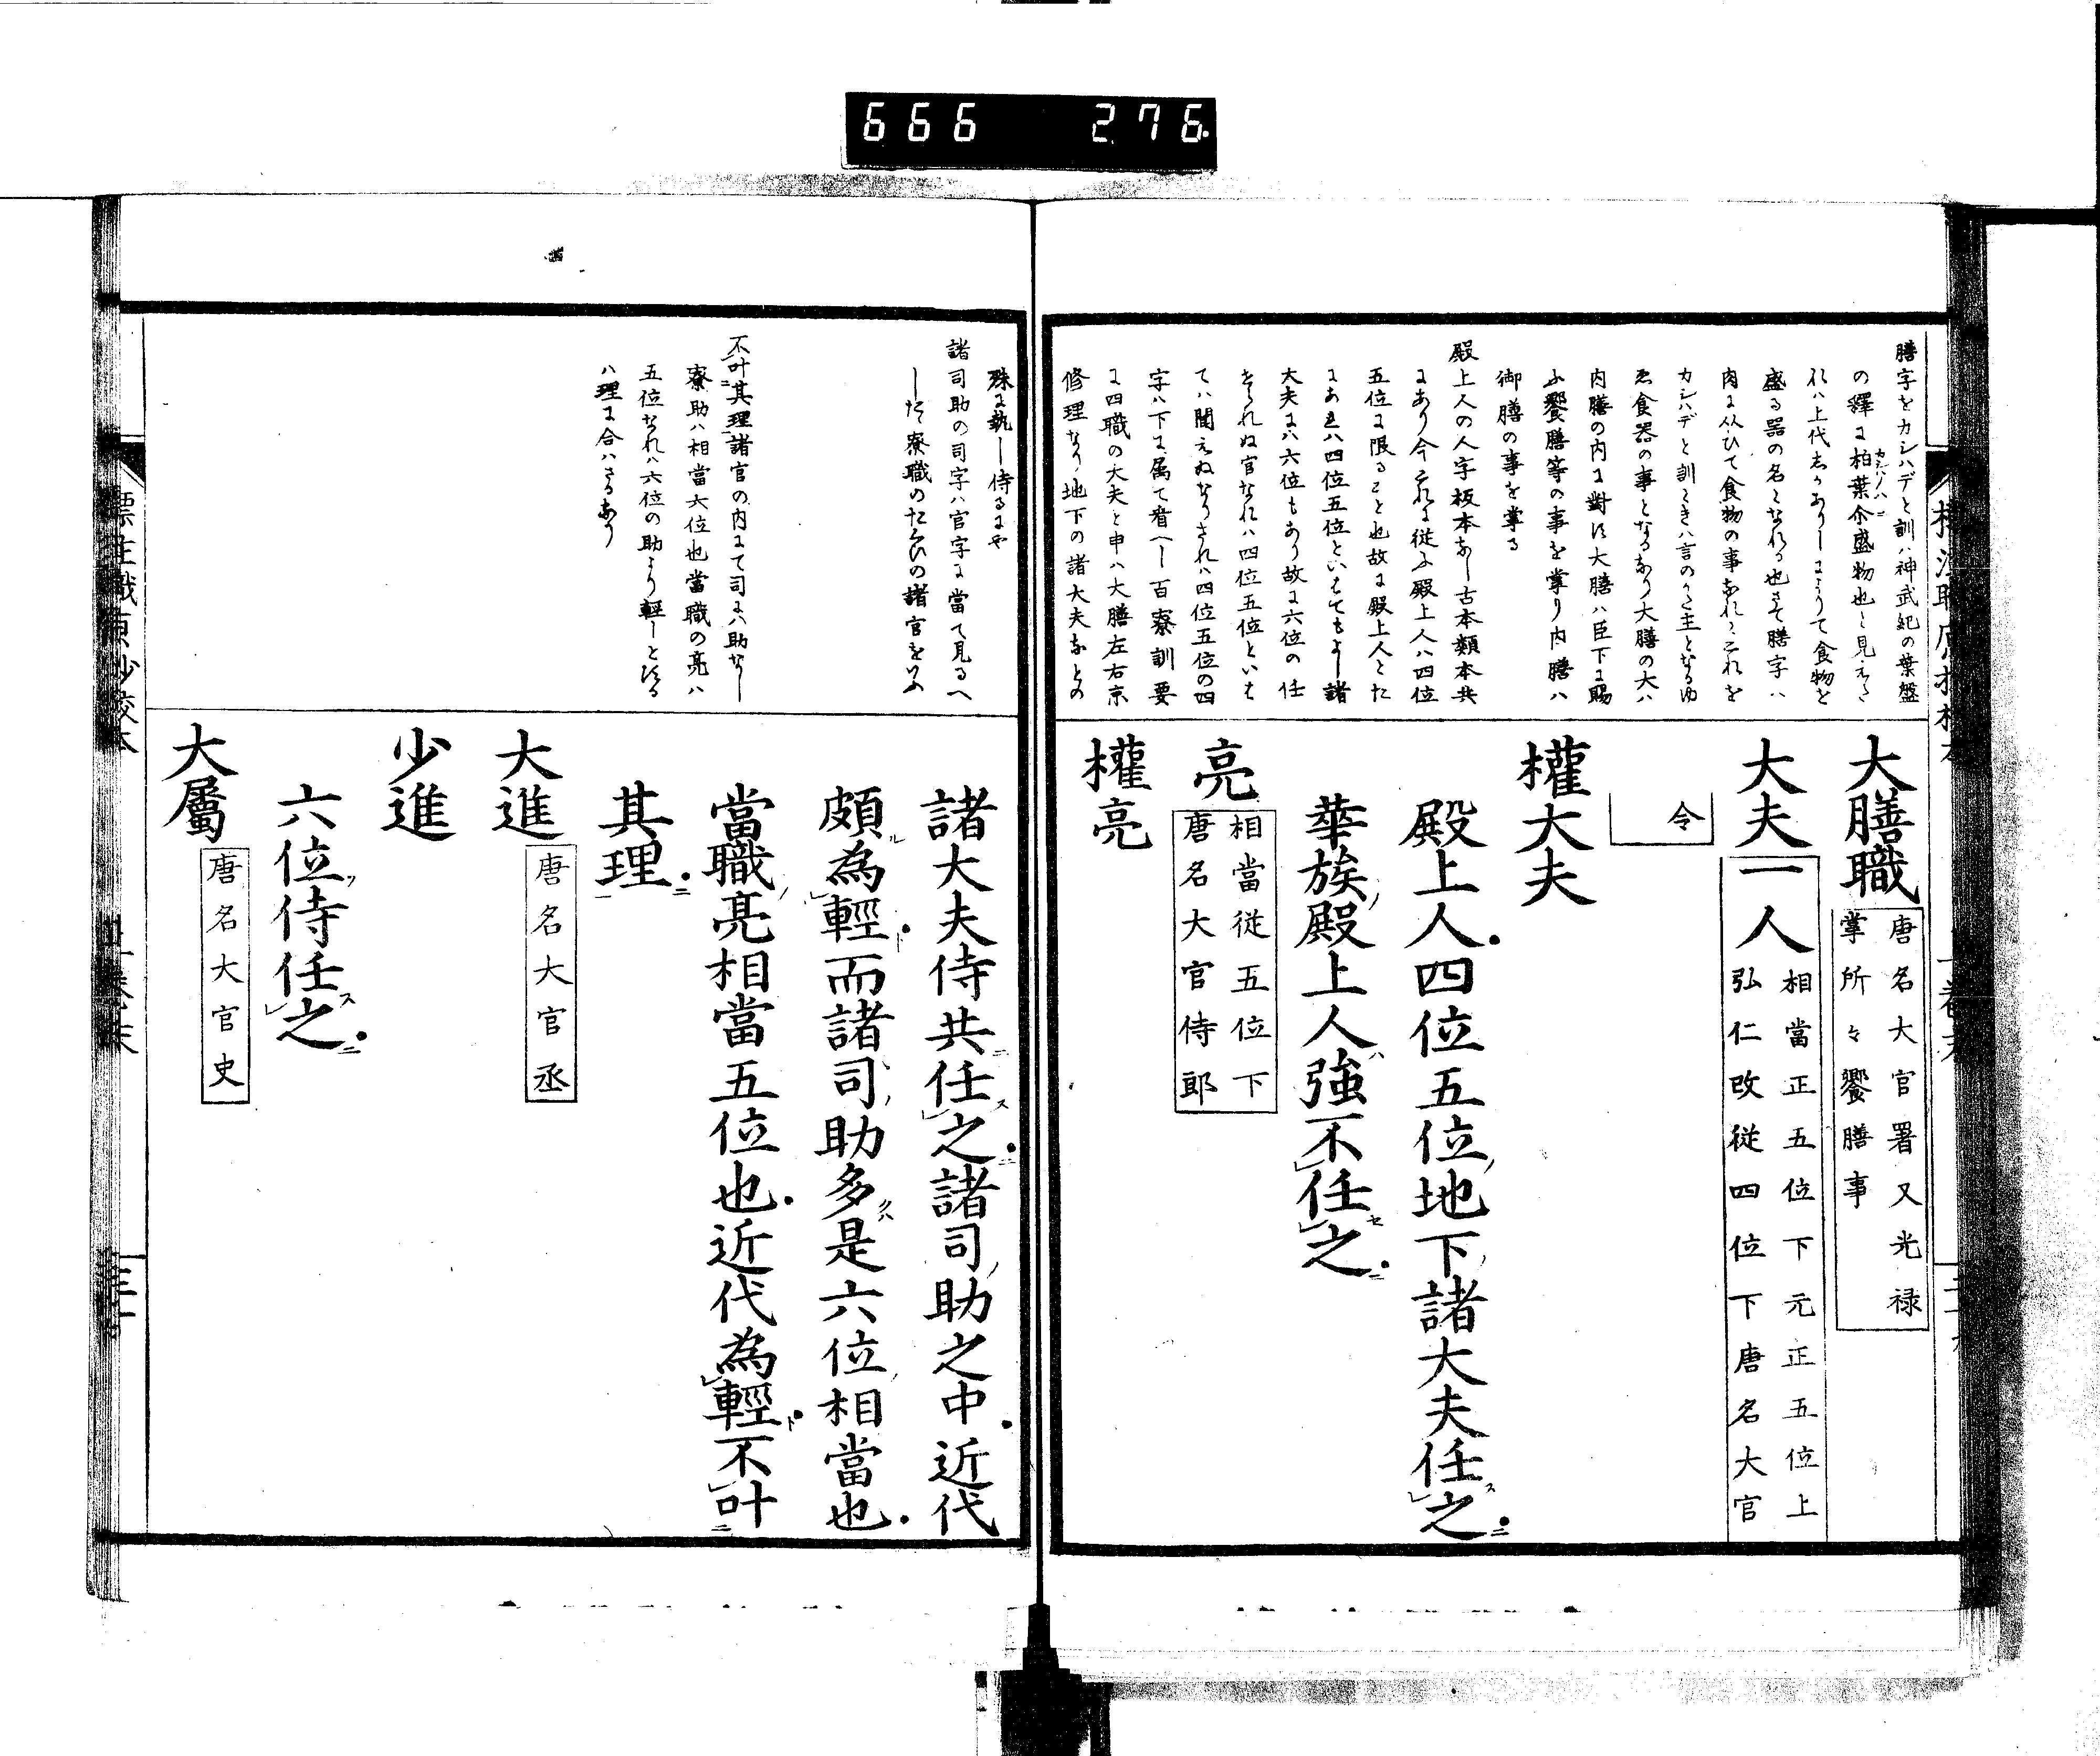 666 276
膳字をカシハデと訓ハ神武紀の葉盤
の釋に柏葉尒盛物也と見え
カシハノハニ
盛る器の名となれる也さて膳字ハ
肉に从ひて食物の事なれハこれを
ゑ食器の事となるなり大膳の大ハ
内膳の内に對に大膳ハ臣下に賜
ふ饗膳等の事を掌り内膳ハ
御膳の事を掌る
殿上人の人字板本なし古本類本共
にあり今これに従ふ殿上人ハ四位
五位に限ること也故に殿上人とた
にあれハ四位五位といはてもよし諸
大夫にハ六位もあり故に六位の任
せられぬ官なれハ四位五位といは
てハ聞えぬなりされハ四位五位の四
字ハ下に属て看へし百寮訓要
に四職の大夫と申ハ大膳左右京
修理なり地下の諸大夫なとの
大膳職
唐名大官署又光禄
掌所々饗膳事
大夫一人
相當正五位下元正五位上
弘仁改従四位下唐名大官
令
權大夫
殿上人四位五位ノ地下ノ諸大夫任之ス二
華族ノ殿上人ハ強不任之セ二
亮
相當従五位下
唐名大官侍郎
權亮
殊に執し侍るにや
諸司助の司字ハ官字に當て見るへ
した寮職のたくひの諸官をいふ
不叶其理諸官の内にて司にハ助なし
寮助ハ相當六位也當職の亮ハ
五位なれハ六位の助より輕しとする
ハ理に合ハさるなり
諸大夫侍共ニ任之ス二諸司ノ助之中近代
頗ル為輕ト而諸司ノ助多クハ是六位ノ相當也
當職ノ亮相當五位也近代為輕ト不叶二
其理ニ一
大進
唐名大官丞
少進
六位ノ侍任之ス二
大屬
唐名大官史
標注職原抄校本